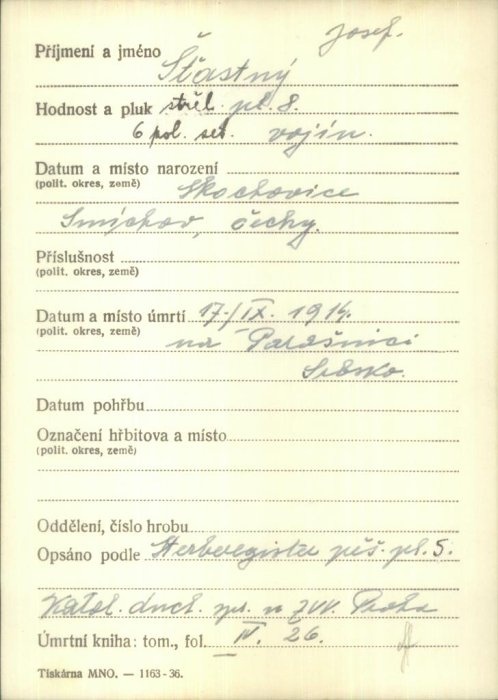 Josef.
Příjmení a jméno Šťastný
Hodnost a pluk střel. pl. 8.
6 pol. set. vojín.
Datum a místo narození
(polit. okres, země) Skochovice
Smíchov, čechy.
Příslušnost
(polit. okres, země)
Datum a místo úmrtí 17./IX. 1914.
(polit. okres, země) na Parašnici
Srbsko.
Datum pohřbu
Označení hřbitova a místo
(polit. okres, země)
Oddělení, číslo hrobu
Opsáno podle Sterberegister pěš. pl. 5.
Katol. duch. spr. v ZVV. Praha
Úmrtní kniha: tom., fol. IV. 26.
Tiskárna MNO. — 1163-36.